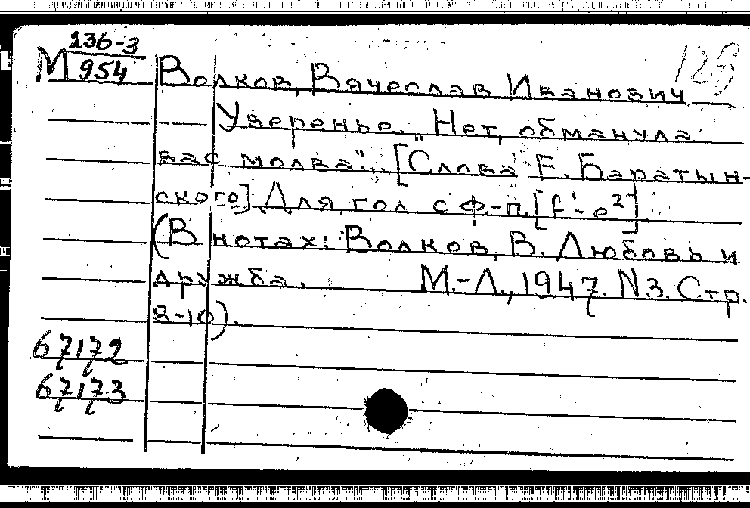 М 136-3
954
128
Волков, Вячеслав Иванович
Уверенье. „Нет, обманула
вас молва". [Слова Е. Баратын-
ского]. Для гол. с ф-п. [f'-e²]
(В нотах: Волков, В. Любовь и
дружба. М.-Л., 1947. N3. Стр.
8-10).
67172
67173